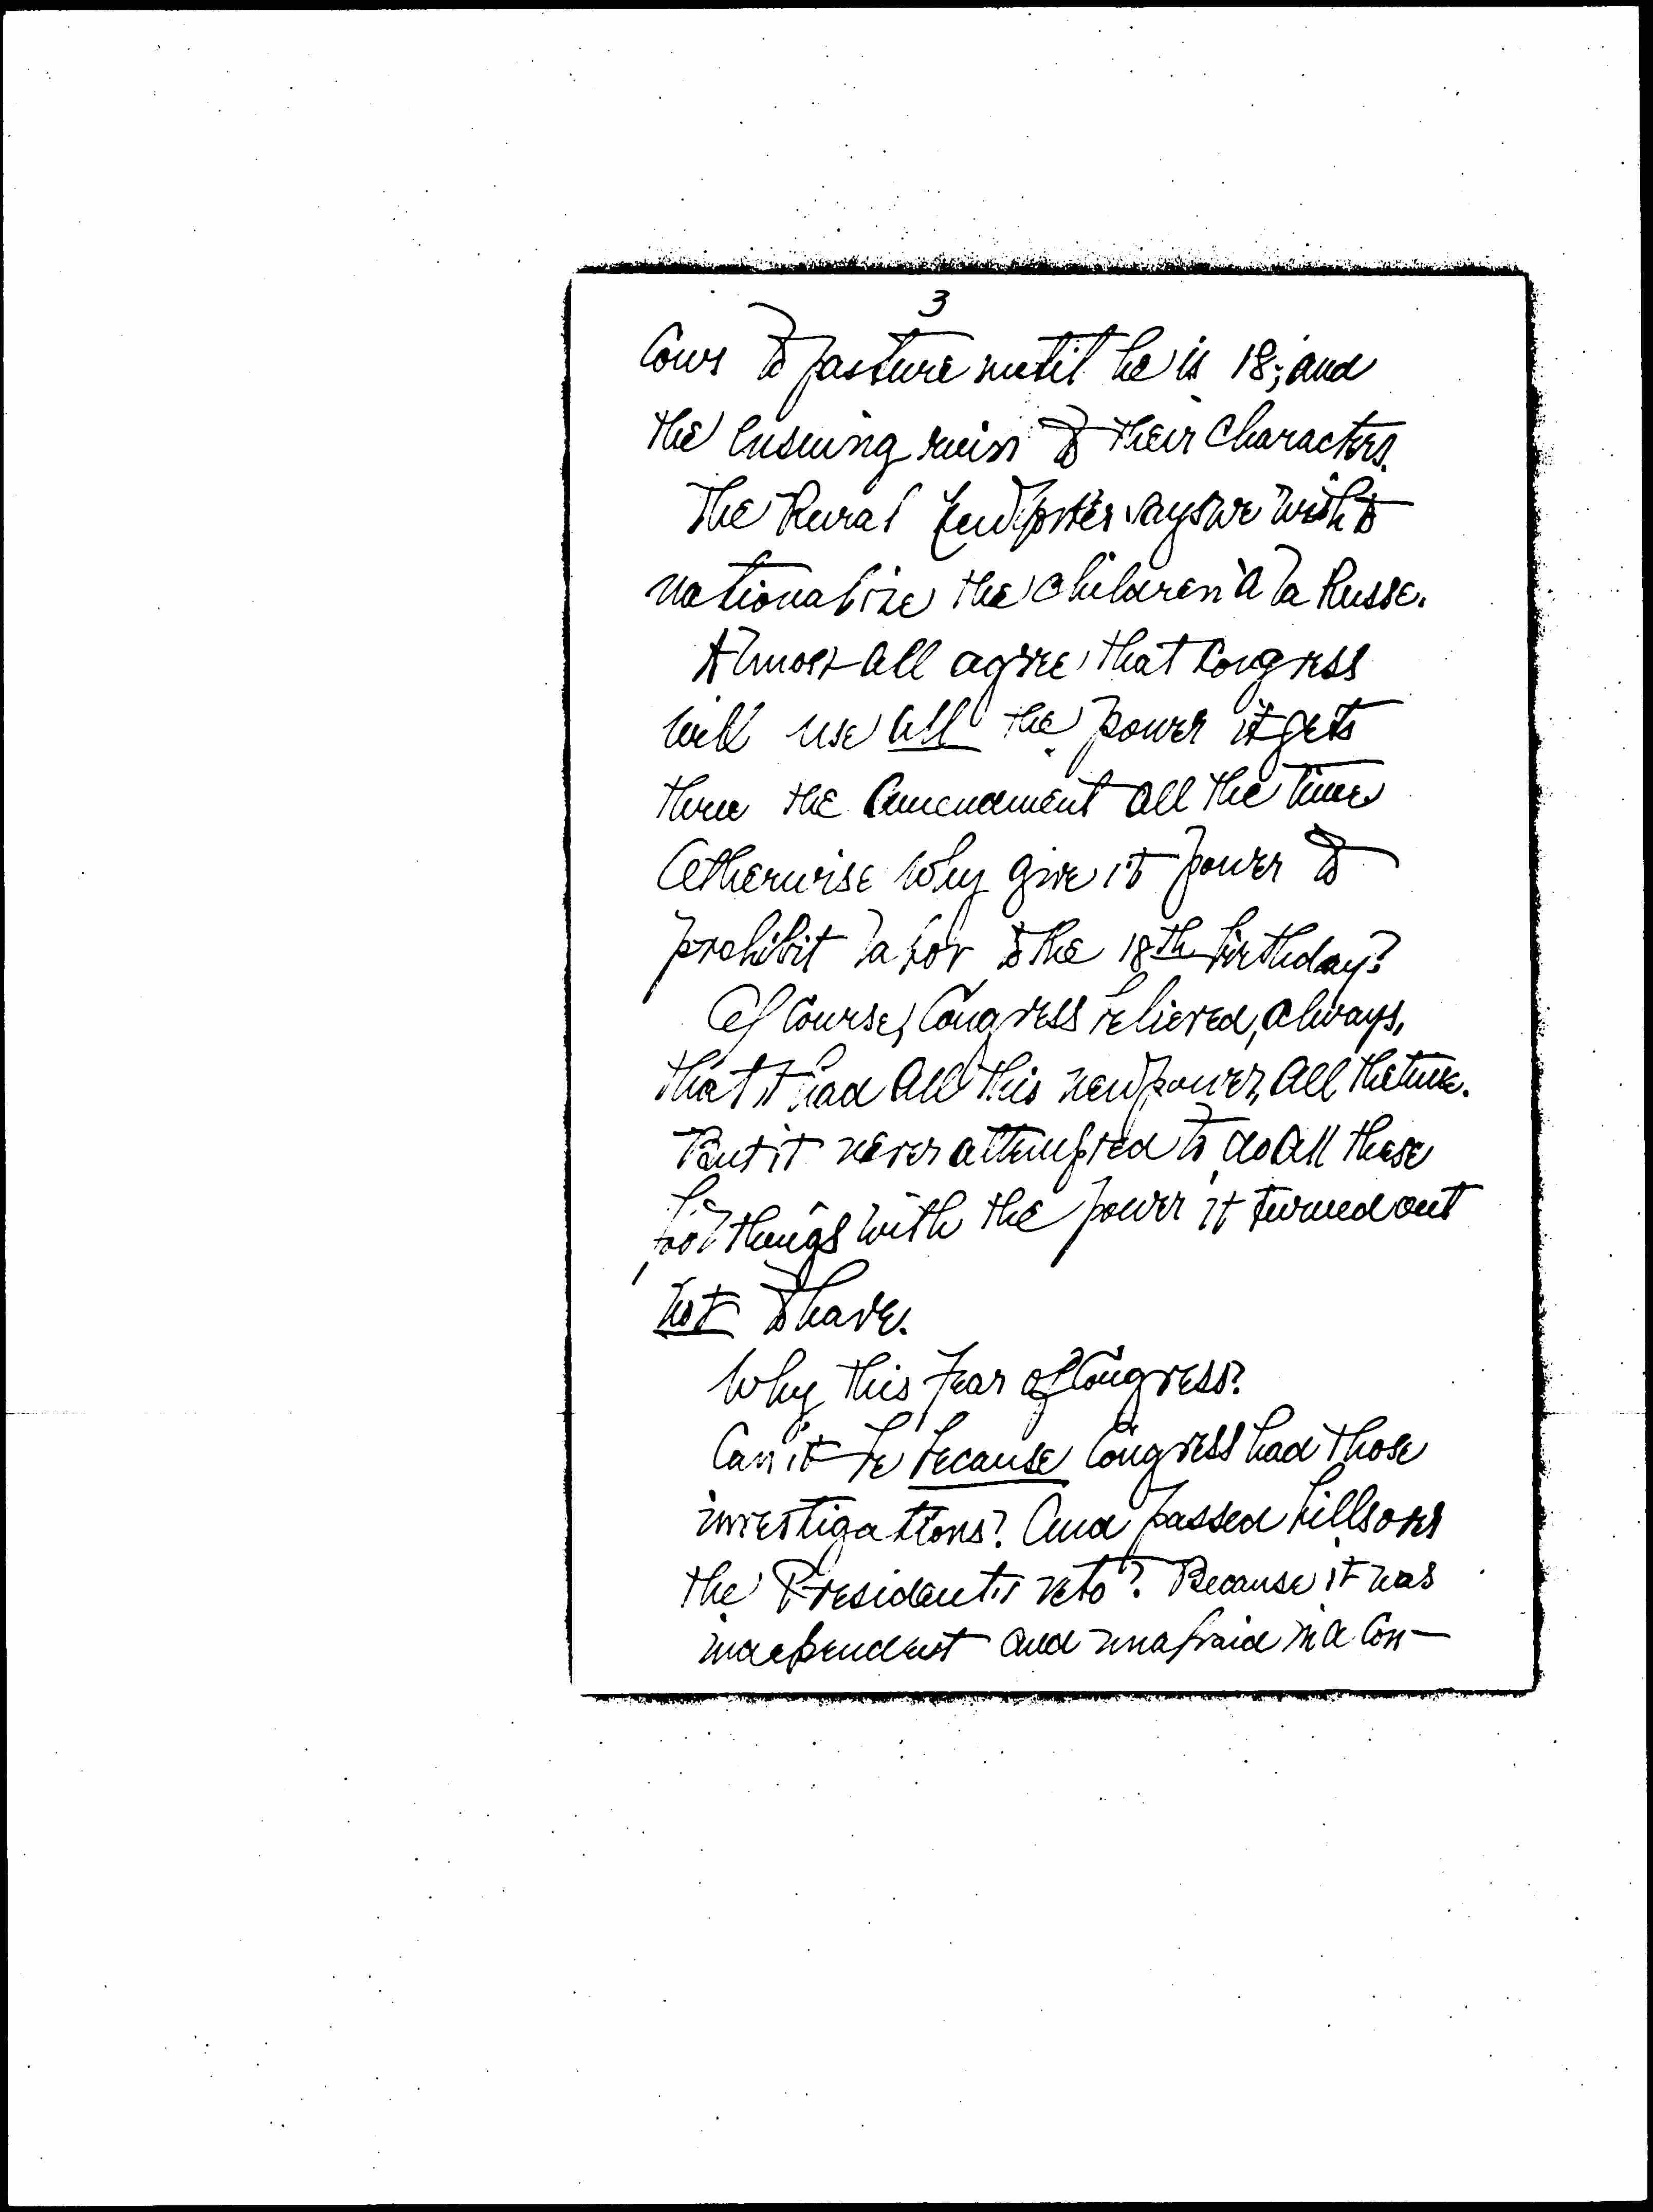 3
Cows to pasture until he is 18; and
the ensuing ruin to their characters.
The Rural says we wish to
nationalize the children à la Russe.
Almost all agree that Congress
will use all the power it gets
thru the Amendment all the time
Otherwise why give it power to
prohibit labor to the 18th birthday?
Of course, Congress believed, always,
that it had all this new power, all the time.
But it never attempted to do all these
fool things with the power it turned out
not to have.
Why this fear of Congress?
Can it be because Congress had those
investigations? And passed bills over
the President's veto? Because it was
independent and unafraid in a Con-